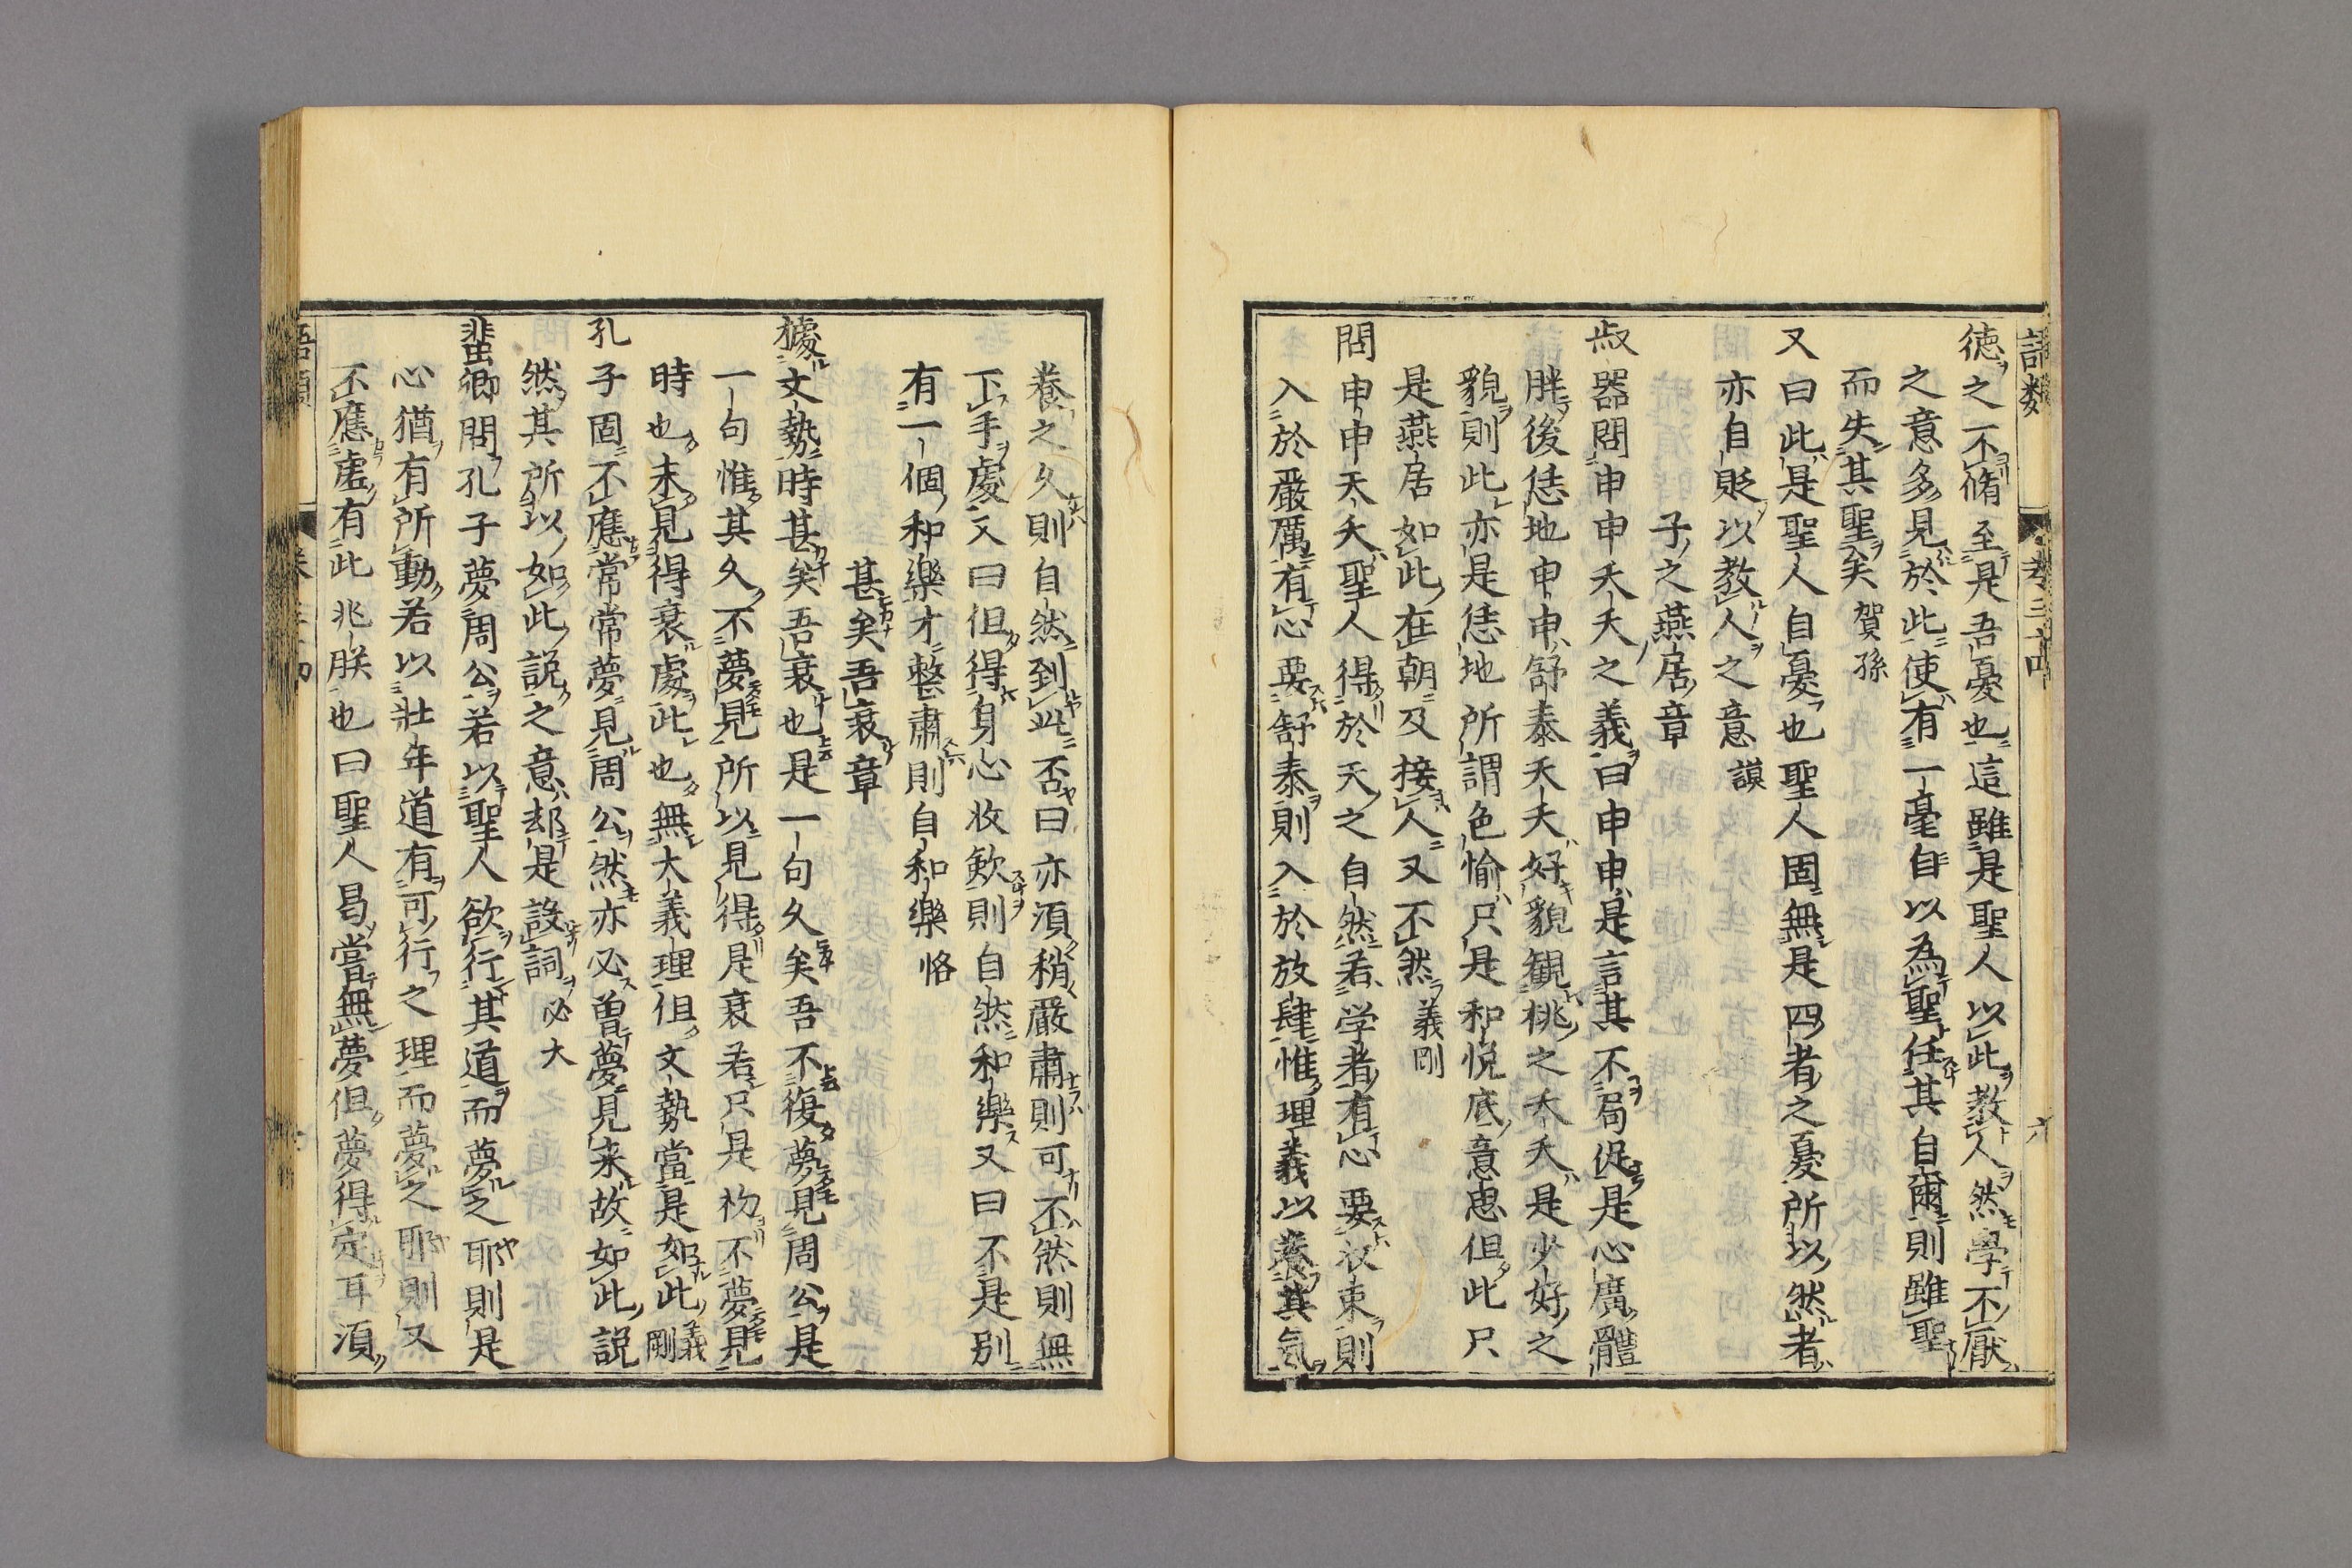 語類 卷三十四 六
德之不脩至是吾憂也這雖是聖人以此教人然學不厭
之意多見於此使有一毫自以為聖任其自爾則雖聖
而失其聖矣 賀孫
又曰此是聖人自憂也聖人固無是四者之憂所以然者
亦自貶以教人之意 謨
子之燕居章
叔器問申申夭夭之義曰申申是言其不局促是心廣體
胖後恁地申申舒泰夭夭好貌觀桃之夭夭是少好之
貌則此亦是恁地所謂色愉只是和悅底意思但此只
是燕居如此在朝及接人又不然 義剛
問申申夭夭聖人得於天之自然若学者有心要收束則
入於嚴厲有心要舒泰則入於放肆惟理義以養其気
養之久則自然到此否曰亦須稍嚴肅則可不然則無
下手處又曰但得身心收歛則自然和樂又曰不是別
有一個和樂才整肅則自和樂 恪
甚矣吾衰章
據文勢時甚矣吾衰也是一句久矣吾不復夢見周公是
一句惟其久不夢見所以見得是衰若只是初不夢見
時也未見得衰處此也無大義理但文勢當是如此 義剛
孔子固不應常常夢見周公然亦必曾夢見来故如此説
然其所以如此説之意却是設詞 必大
蜚卿問孔子夢周公若以聖人欲行其道而夢之耶則是
心猶有所動若以壯年道有可行之理而夢之耶則又
不應虛有此兆朕也曰聖人曷嘗無夢但夢得定耳須